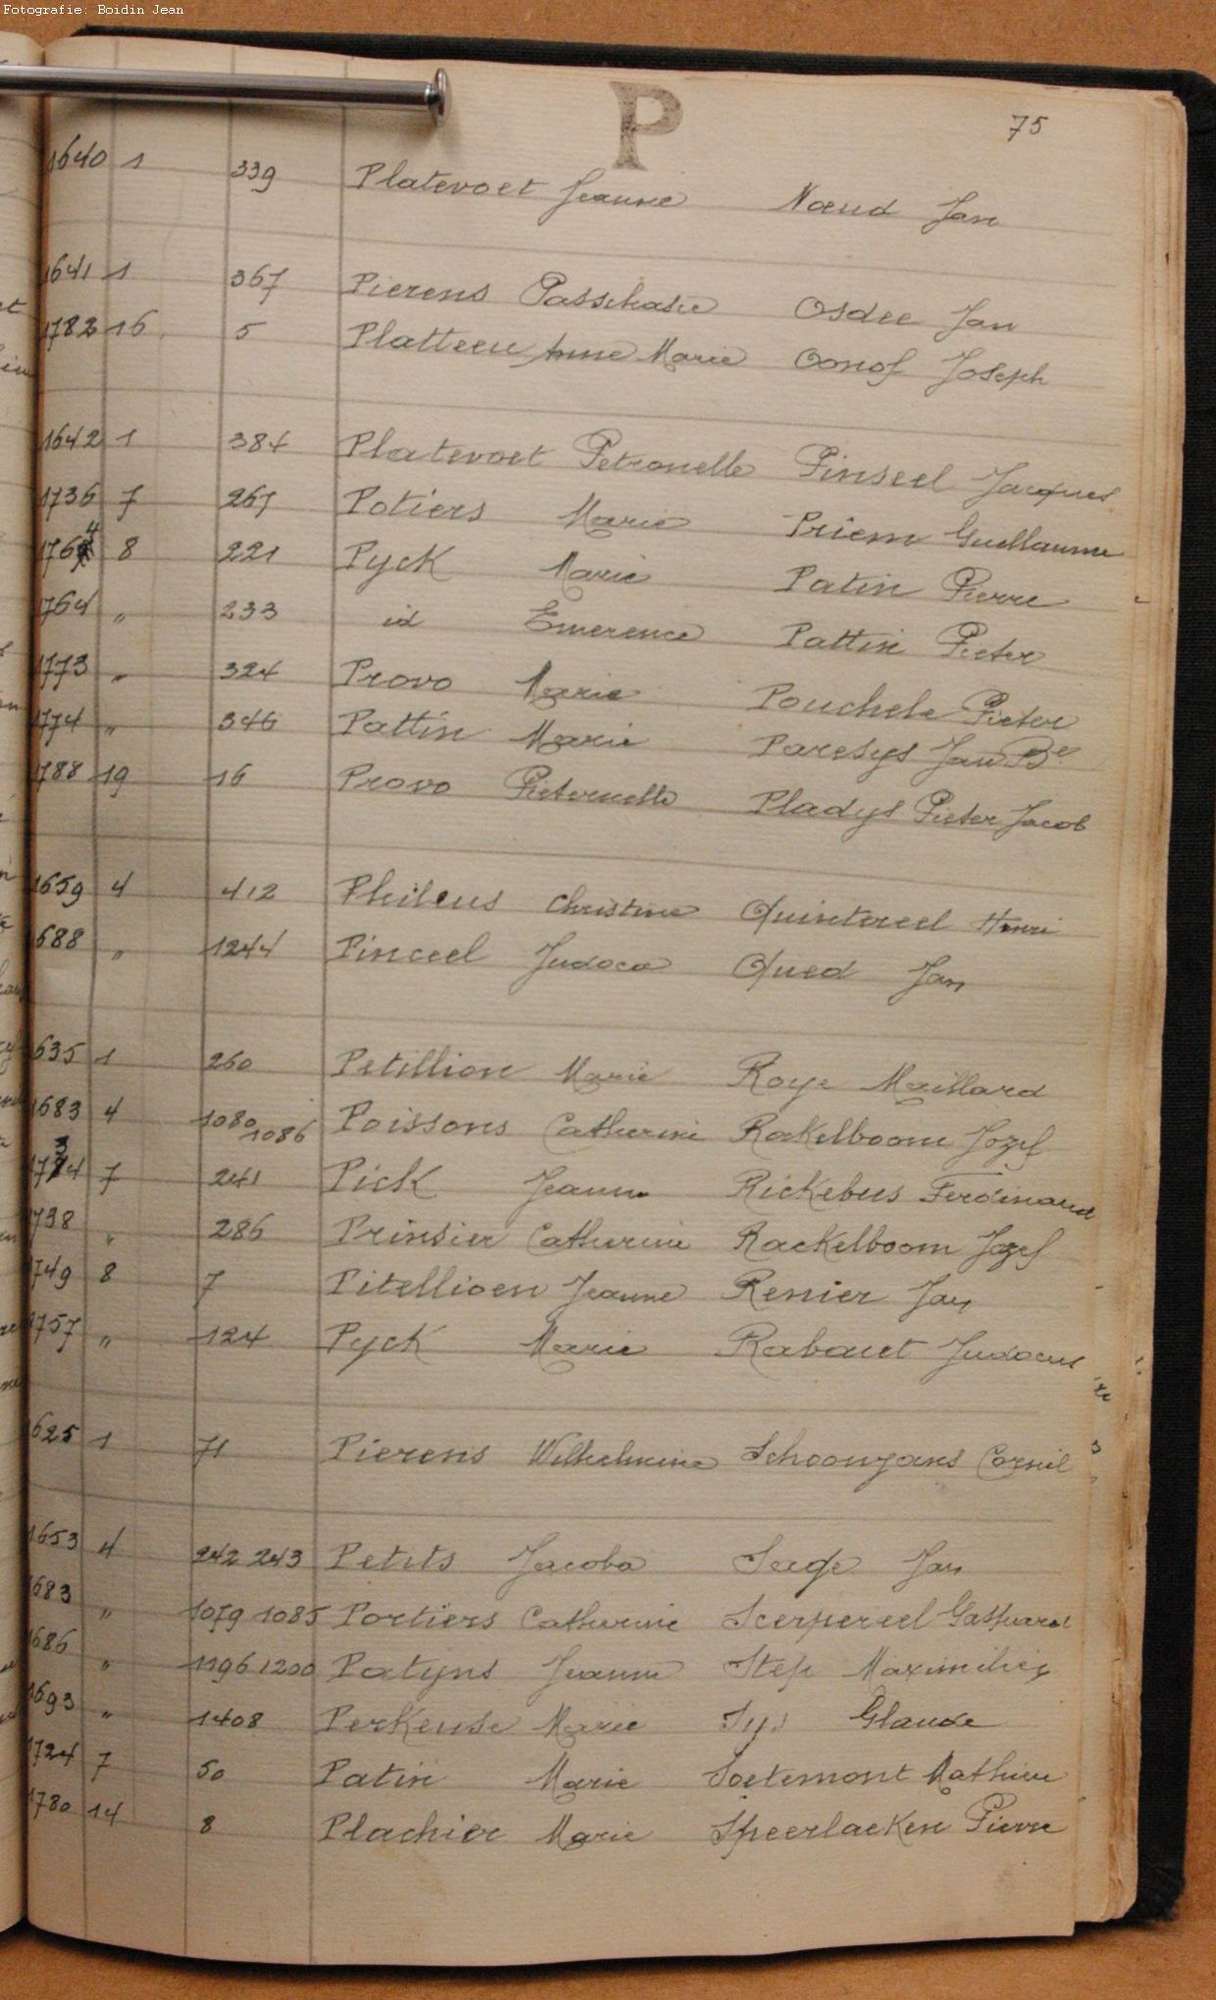 Fotografie: Boidin Jean
P
75
1640 1 339 Platevoet Jeanne Nœud Jan
1641 1 367 Pierens Passchasie Osdee Jan
1782 16 5 Platteeu Anne Marie Oonof Joseph
1642 1 384 Platevoet Petronelle Pinseel Jacques
1736 7 267 Potiers Marie Priem Guellaume
1764 8 221 Pyck Marie Patin Pierre
1764 " 233 id Emerence Pattin Pieter
1773 " 324 Provo Marie Pouchele Pieter
1774 " 346 Pattin Marie Paresys Jan Bᵉ
1788 19 16 Provo Pieternelle Pladys Pieter Jacob
1659 4 412 Phileus Christine Quintereel Henri
1688 " 1244 Pinceel Judoca Qued Jan
1635 1 260 Petillion Marie Roye Maillard
1683 4 1080 1086 Poissons Catherine Rakelboom Jozef
1734 7 241 Pick Jeanne Rickebus Ferdinand
1738 " 286 Prinsier Catherine Rackelboom Jozef
1749 8 7 Pitellioen Jeanne Renier Jan
1757 " 124 Pyck Marie Rabaut Judocus
1625 1 71 Pierens Wilhelmine Schoonjans Cornil
1653 4 242 243 Petits Jacoba Seege Jan
1683 " 1079 1085 Portiers Catherine Scerpereel Gaspard
1686 " 1196 1200 Patyns Jeanne Step Maximilien
1693 " 1408 Perkeuse Marie Sys Glaude
1724 7 50 Patin Marie Soetemont Mathieu
1780 14 8 Plachier Marie Speerlaeken Pierre